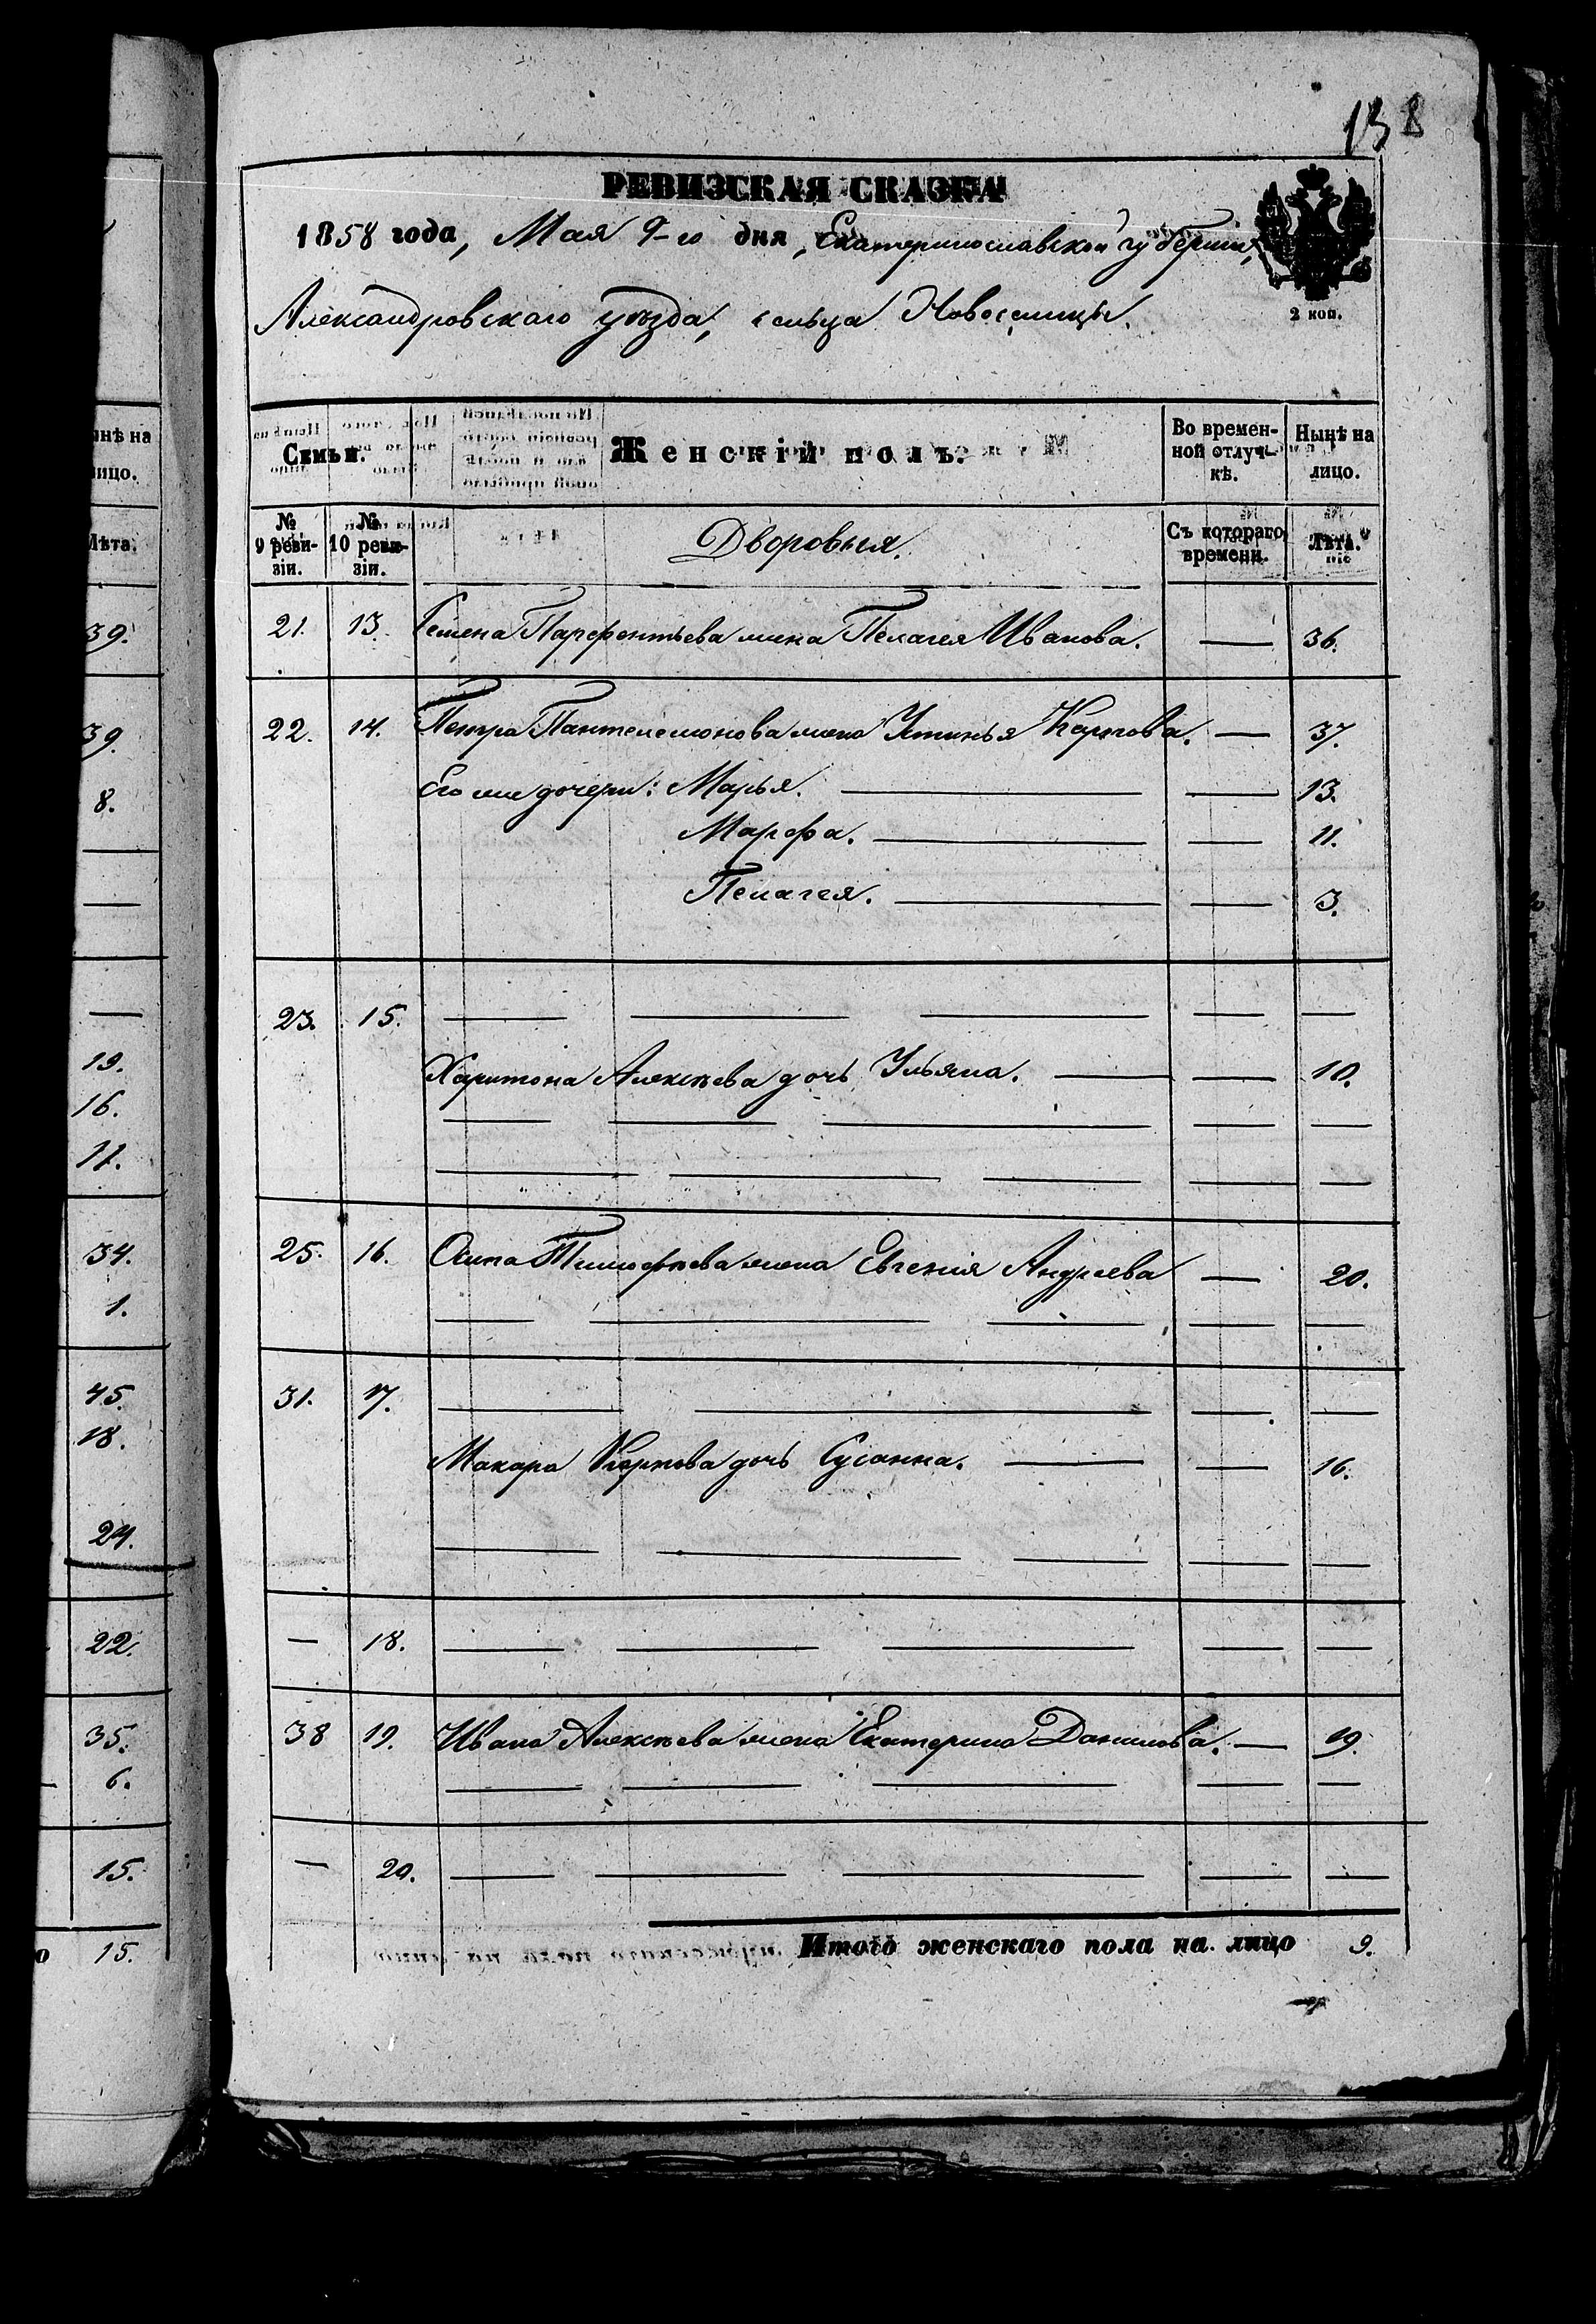 138
РЕВИЗСКАЯ СКАЗКА
1858 года, Мая 9-го дня, Екатеринославской губерніи,
Александровскаго уѣзда, сельца Новоселицы.
2 коп.
Семьи. Женскій полъ. Во времен-ной отлуч-кѣ. Нынѣ на лицо.
№ 9 реви-зіи. № 10 реви-зіи. Дворовыя. Съ котораго времени. Лѣта.
21. 13. Семена Парфентьева жена Пелагея Иванова. — 36.
22. 14. Петра Пантелемонова жена Устинья Карпова. — 37.
Его же дочери: Марья. — 13.
Марфа. — 11.
Пелагея. — 3.
23. 15. — — —
Харитона Алексѣева дочь Ульяна. — 10.
25. 16. Осипа Тимофѣева жена Евгенія Андреева — 20.
31. 17. — — —
Макара Карпова дочь Сусанна. — 16.
— 18. — — —
38 19. Ивана Алексѣева жена Екатерина Данилова. — 19.
— 20. — — —
Итого женскаго пола на лицо 9.
нѣ на
лицо.
Лѣта.
39.
39.
8.
19.
16.
11.
34.
1.
45.
18.
24.
22.
35.
6.
15.
о 15.